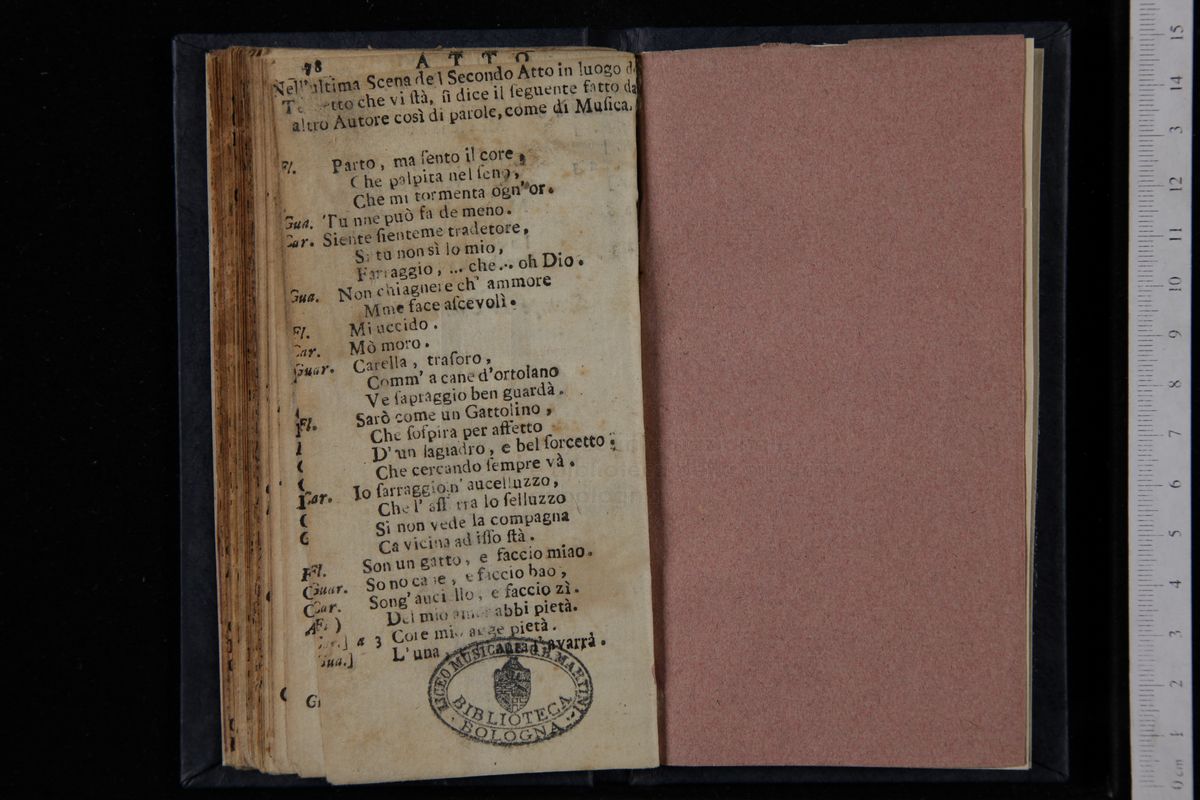 78 ATTO
Nell'ultima Scena del Secondo Atto in luogo
che vi stà, si dice il seguente fatto da
altro Autore così di parole, come di Musica.
Fl. Parto, ma sento il core,
Che palpita nel seno,
Che mi tormenta ogn'or.
Gua. Tu nne può fa de meno.
Car. Siente sienteme tradetore,
Si tu non sì lo mio,
Farraggio, ... che... oh Dio.
Gua. Non chiagnere ch' ammore
Mme face ascevolì.
Fl. Mi uccido.
Car. Mò moro.
Guar. Carella, trasoro,
Comm' a cane d'ortolano
Ve sapraggio ben guardà.
Fl. Sarò come un Gattolino,
Che sospira per affetto
D'un lagiadro, e bel sorcetto;
Che cercando sempre và.
Car. Io sarraggio n' aucelluzzo,
Che l' lo felluzzo
Si non vede la compagna
Ca vicina ad isso stà.
Fl. Son un gatto, e faccio miao.
Guar. Sono cane, e faccio bao,
Car. Song' auciello, e faccio zì.
Fl.) Del mio amor abbi pietà.
Car.] a 3 Core mio agge pietà.
Gua.] L'una, l'avarrà.
LICEO MUSICALE G.B. MARTINI
BIBLIOTECA
BOLOGNA
15
14
13
12
11
10
9
8
7
6
5
4
3
2
1
0 cm